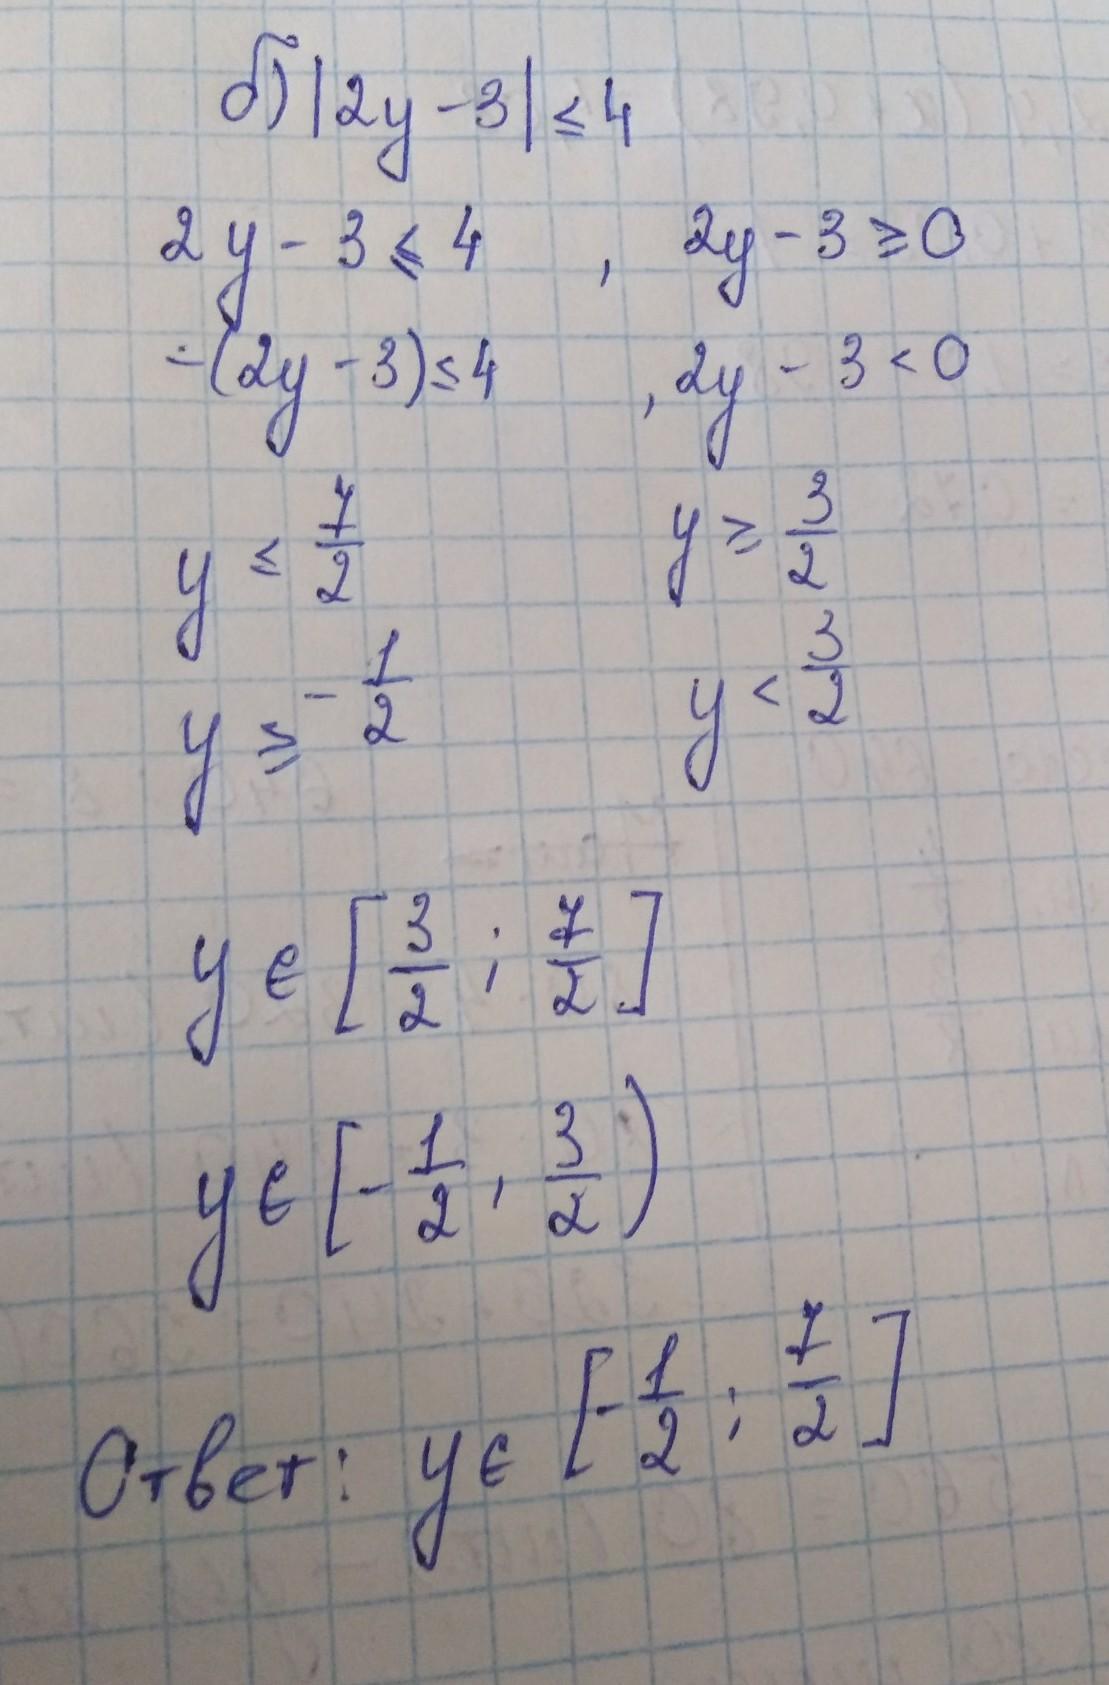 б) |2y - 3| ≤ 4
2y - 3 ≤ 4 , 2y - 3 ≥ 0
-(2y - 3) ≤ 4 , 2y - 3 < 0
y ≤ 7/2 y ≥ 3/2
y ≥ - 1/2 y < 3/2
y ∈ [3/2 ; 7/2]
y ∈ [- 1/2 , 3/2)
Ответ: y ∈ [- 1/2 ; 7/2]